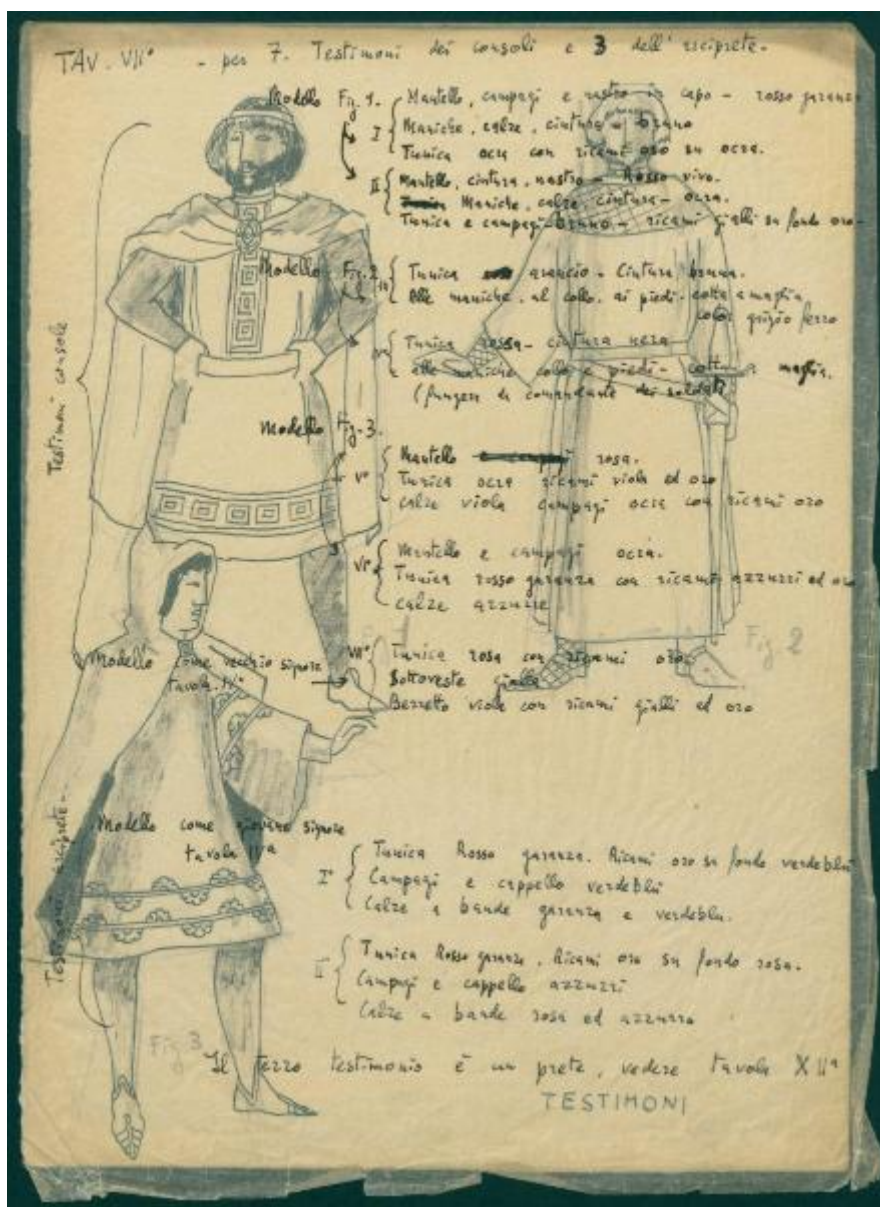 TAV. VII° - per 7. Testimoni dei consoli e 3 dell'arciprete.
Modello Fig. 1.
I
Mantello, campagi e nastro in capo - rosso garanza
Maniche, calze, cintura - bruno
Tunica ocra con ricami oro su ocra.
II
Mantello, cintura, nastro - Rosso vivo.
Maniche, calze, cintura - ocra.
Tunica e campagi bruno - ricami gialli su fondo oro -
Modello Fig. 2
III
Tunica arancio - Cintura bruna.
Alle maniche, al collo, ai piedi - cotta a maglia
color grigio ferro
IV
Tunica rossa - cintura nera
alle maniche collo e piedi - cotta a maglia.
(funger da comandante dei soldati
Testimoni console
Modello Fig. 3.
V°
Mantello rosa.
Tunica ocra ricami viola ed oro
calze viola campagi ocra con ricami oro
VI°
Mantello e campagi ocra.
Tunica rosso garanza con ricami azzurri ed oro
calze azzurre
Fig 1
Fig 2
Modello come vecchio signore
tavola IV°
VII°
Tunica rosa con ricami oro.
Sottoveste gialla
Berretto viola con ricami gialli ed oro
Testimoni arciprete -
Modello come giovane signore
tavola IVa
I°
Tunica Rosso garanza. Ricami oro su fondo verdeblù
Campagi e cappello verdeblù
Calze a bande garanza e verdeblu.
II
Tunica Rosso garanza. Ricami oro su fondo rosa.
Campagi e cappello azzurri
Calze a bande rosa ed azzurro
Fig 3
Il terzo testimonio è un prete, vedere tavola XIIa
TESTIMONI